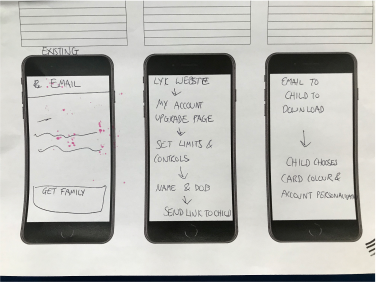 EXISTING
EMAIL
GET FAMILY
LYK WEBSITE
MY ACCOUNT
UPGRADE PAGE
SET LIMITS &
CONTROLS
NAME & DOB
SEND LINK TO CHILD
EMAIL TO
CHILD TO
DOWNLOAD
CHILD CHOOSES
CARD COLOUR &
ACCOUNT PERSONALISATION